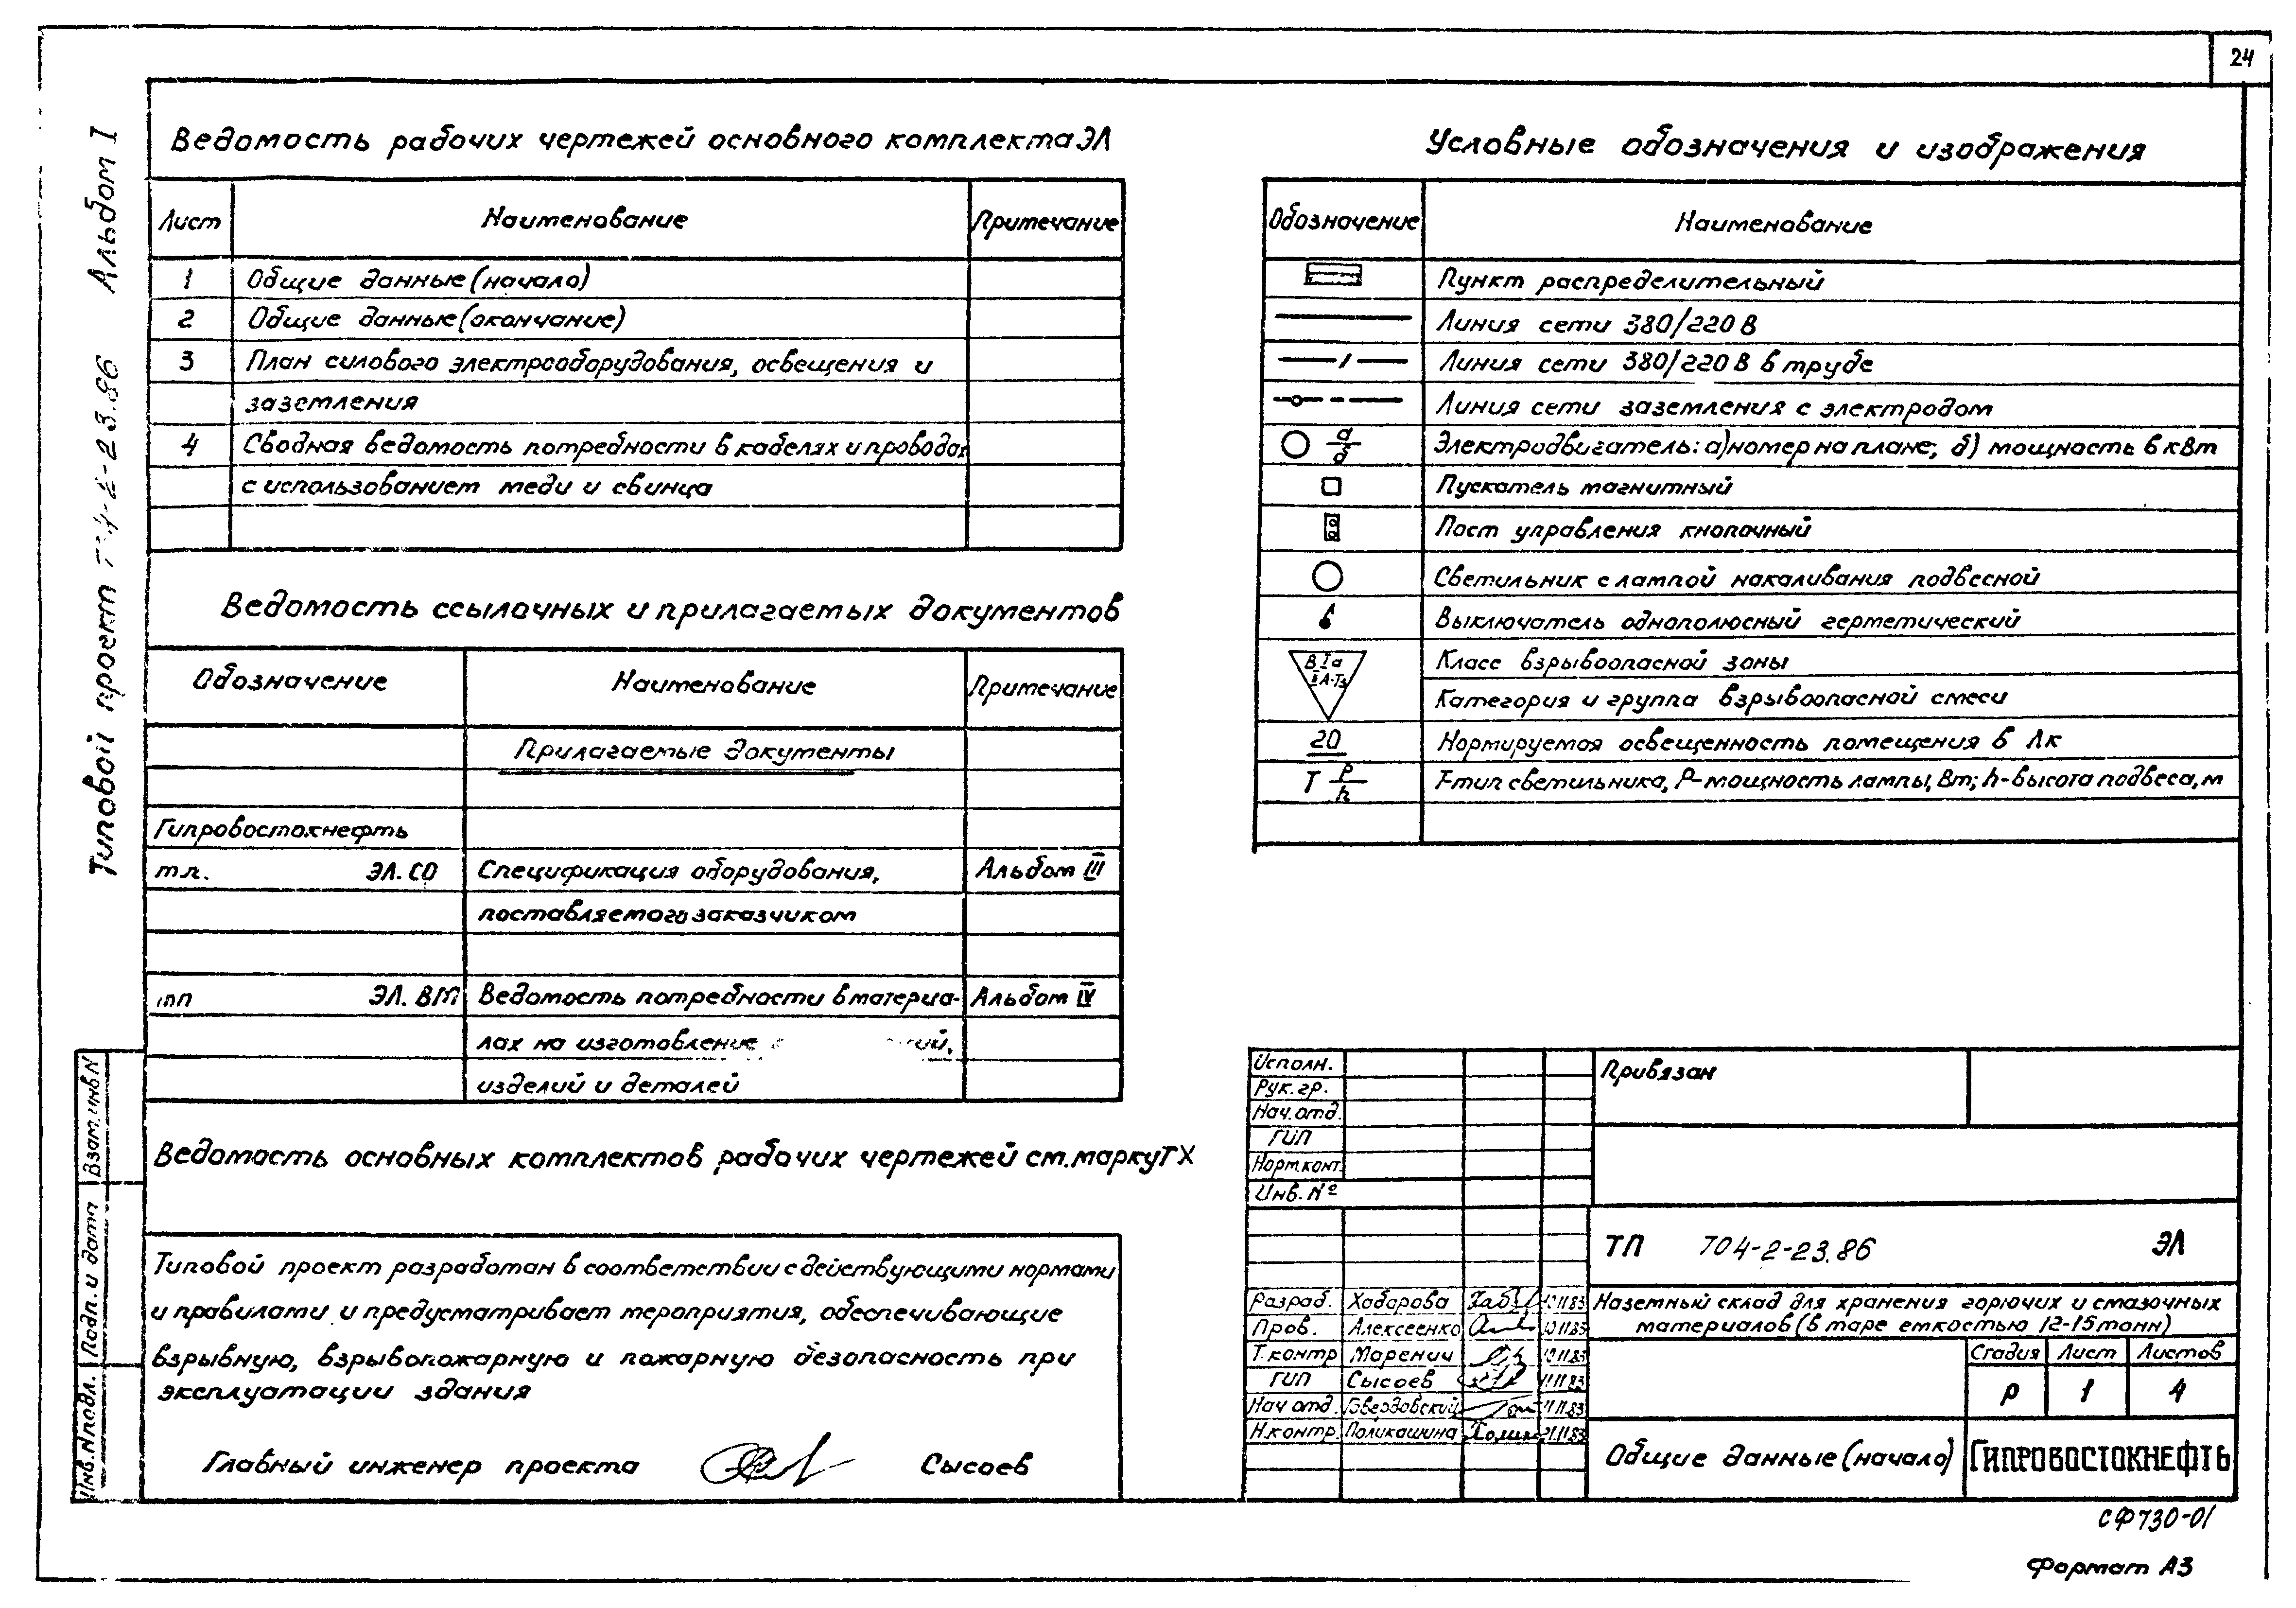 24
Альбом I
Типовой проект
Ведомость рабочих чертежей основного комплекта ЭЛ
Лист Наименование Примечание
1 Общие данные (начало)
2 Общие данные (окончание)
3 План силового электрооборудования, освещения и
заземления
4 Сводная ведомость потребности в кабелях и проводах
с использованием меди и свинца
Ведомость ссылочных и прилагаемых документов
Обозначение Наименование Примечание
Прилагаемые документы
Гипровостокнефть
т.п. ЭЛ. СО Спецификация оборудования, Альбом III
поставляемого заказчиком
тп ЭЛ. ВМ Ведомость потребности в материа- Альбом IV
лах на изготовление
изделий и деталей
Ведомость основных комплектов рабочих чертежей см. марку ТХ
Типовой проект разработан в соответствии с действующими нормами
и правилами и предусматривает мероприятия, обеспечивающие
взрывную, взрывопожарную и пожарную безопасность при
эксплуатации здания
Главный инженер проекта Сысоев
Условные обозначения и изображения
Обозначение Наименование
Пункт распределительный
Линия сети 380/220 В
Линия сети 380/220 В в трубе
Линия сети заземления с электродом
а/б Электродвигатель: а) номер на плане; б) мощность в кВт
Пускатель магнитный
Пост управления кнопочный
Светильник с лампой накаливания подвесной
Выключатель однополюсный герметический
В Iа Класс взрывоопасной зоны
II А-Т3 Категория и группа взрывоопасной смеси
20 Нормируемая освещенность помещения в Лк
T P/h T-тип светильника, P-мощность лампы, Вт; h-высота подвеса, м
Исполн.
Рук. гр.
Нач. отд.
ГИП
Норм. конт.
Инв. №
Привязан
ТП 704-2-23.86 ЭЛ
Разраб. Хабарова
Пров. Алексеенко
Т. контр Маренич
ГИП Сысоев
Нач отд. Твердовский
Н. контр. Поликашина
Наземный склад для хранения горючих и смазочных
материалов (в таре емкостью 12-15 тонн)
Стадия Лист Листов
Р 1 4
Общие данные (начало) ГИПРОВОСТОКНЕФТЬ
Взам. инв N
Подп. и дата
Инв. N подл.
СФ730-01
Формат А3